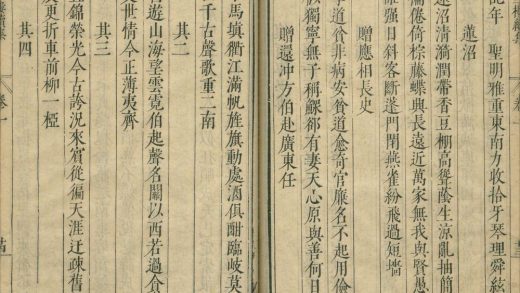 記年 聖明雅重東南力收拾牙琴理舜絃
蓮沼
遠沼清漪潤帶香豆棚高聳蔭生涼亂抽簡
倦倚棕藤蝶與長遠近萬家無我與賢愚
強目斜客斷蓬門閉燕雀紛飛過短墻
贈應相長史
道貧非病安貧道愈奇官廉名不起用儉
獨寧無子稱鰥卻有妻天心原與善何日
贈還冲方伯赴廣東任
馬填衢江滿帆旌旗動處酒俱酣臨岐莫
千古聲歌重二南
其二
遊山海望雲霓伯起聲名關以西若過食
世情今正薄夷齊
其三
錦榮光今古誇況來賓從徧天涯迂疎舊
更折車前柳一椏
其四
卷一